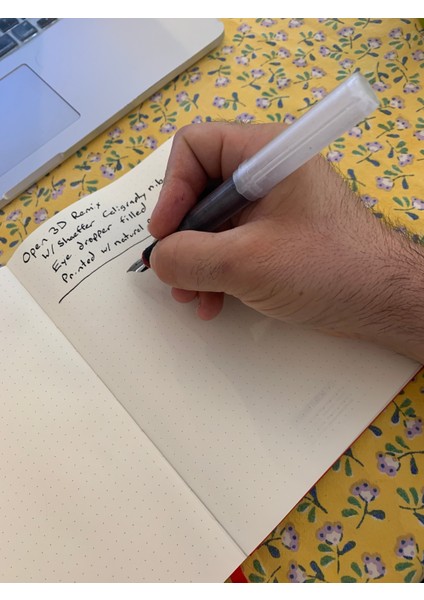 Open 3D Remix
w/ shaeffer Caligraphy nibs
Eye dropper filled
Printed w/ natural